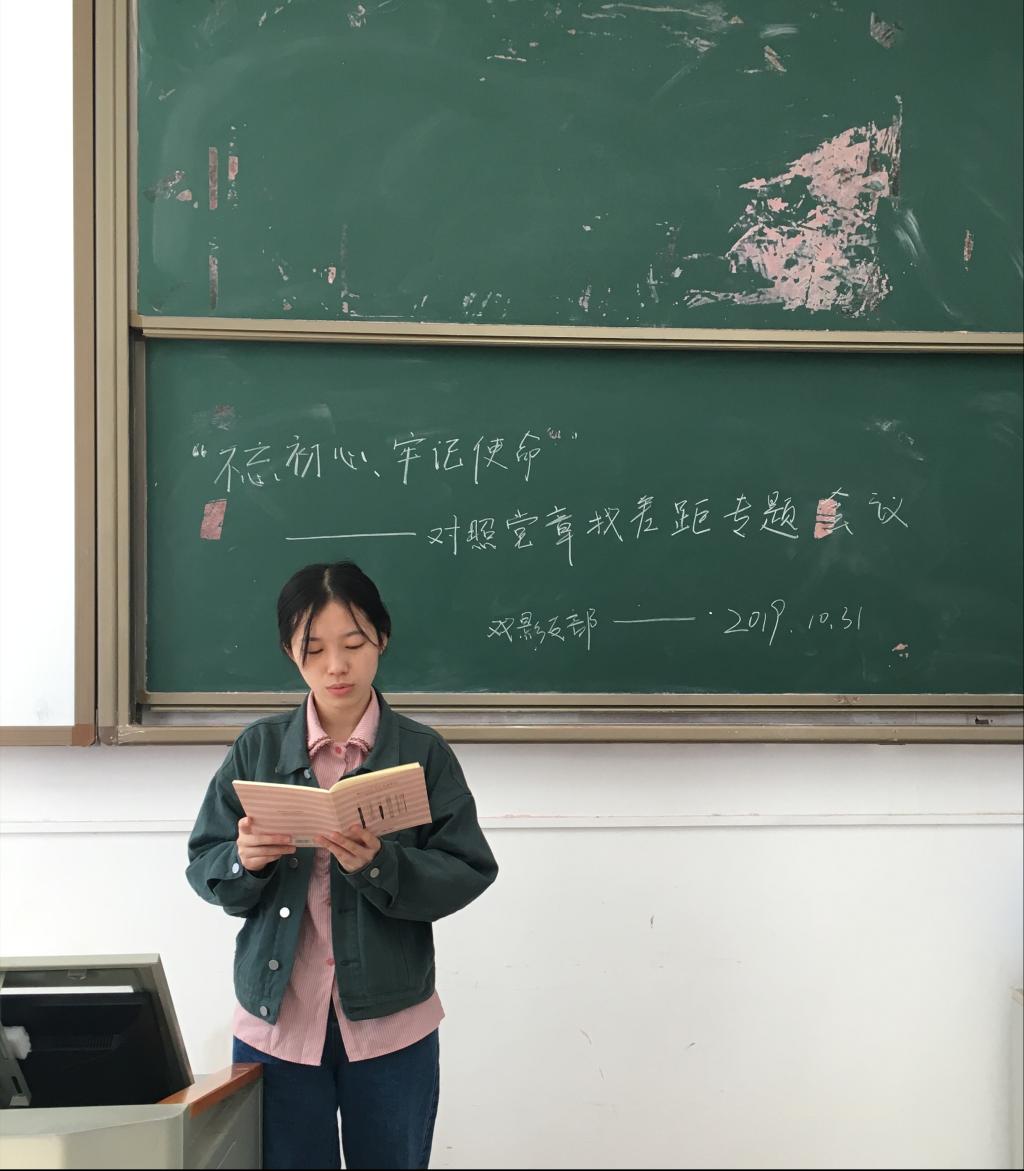 “不忘初心、牢记使命”
——对照党章找差距专题会议
戏影支部——·2019.10.31